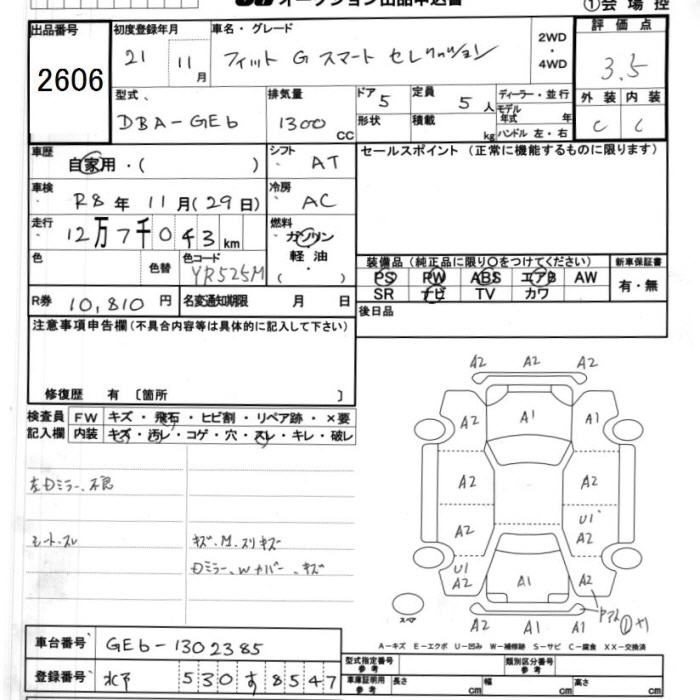 オークション出品申込書 ①会場控
出品番号 初度登録年月 車名・グレード 2WD・4WD 評価点
2606 21 11月 フィット G スマート セレクション 3.5
型式 排気量 ドア 5 定員 5人 ディーラー・並行 外装 内装
DBA-GE6 1300 CC 形状 積載 kg モデル年式 年 C C
ハンドル 左・右
車歴 シフト AT セールスポイント (正常に機能するものに限ります)
自家用・( )
車検 R8年 11月(29日) 冷房 AC
走行 12万7千043km 燃料 ガソリン 軽油 ( )
色 色替 色コード YR525M 装備品 (純正品に限り○をつけてください) 新車保証書
PS PW ABS エアB AW 有・無
SR ナビ TV カワ
R券 10,810円 名変通知期限 月 日 後日品
注意事項申告欄(不具合内容等は具体的に記入して下さい)
修復歴 有 〔箇所 〕
検査員 FW キズ・飛石・ヒビ割・リペア跡・×要
記入欄 内装 キズ・汚レ・コゲ・穴・スレ・キレ・破レ
シート.スレ キズ.M.スリキズ
Dミラー.Wカバー.キズ
A2 A2 A2
A2 A1 A1
A2 A2
A2 U1 A2
U1 A2 A1 A2
A2 A1 A1
スペア
A-キズ E-エクボ U-凹み W-補修跡 S-サビ C-腐食 XX-交換済
車台番号 GE6-1302385
型式指定番号 参考 類別区分番号 参考
登録番号 530 す 8547
車庫証明用 参考 長さ cm 幅 cm 高さ cm